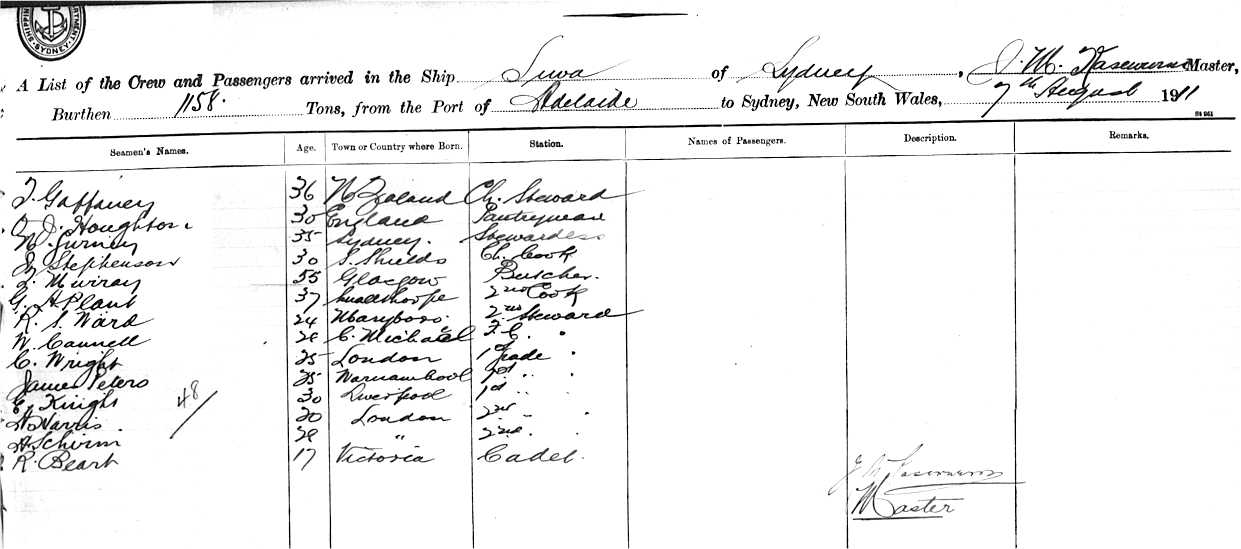 SHIPPING DEPARTMENT. SYDNEY
A List of the Crew and Passengers arrived in the Ship Suva of Sydney, J. M. Master,
Burthen 1158. Tons, from the Port of Adelaide to Sydney, New South Wales, 7th August 1911
Seamen's Names. Age. Town or Country where Born. Station. Names of Passengers. Description. Remarks.
T. Gaffaney 36 N Zealand Ch. Steward
J. Houghton 30 England Pantryman
N. Gurney 35 Sydney. Stewardess
Stephenson 30 S. Shields Ch. Cook
J. Murray 55 Glasgow Butcher.
G. A Plant 37 2nd Cook
R. S. Ward 24 Maryboro. 2nd Steward
W. Cannell 28 C. Michael F. C. "
C. Wright 25 London 1st grade "
James Peters 25 Warnambool 1st " "
E. Knight 30 Liverpool 1st " "
A Harris. 20 London 2nd " "
A. Schirm 28 " 2nd " "
R. Beart 17 Victoria Cadet.
48/
J M
Master